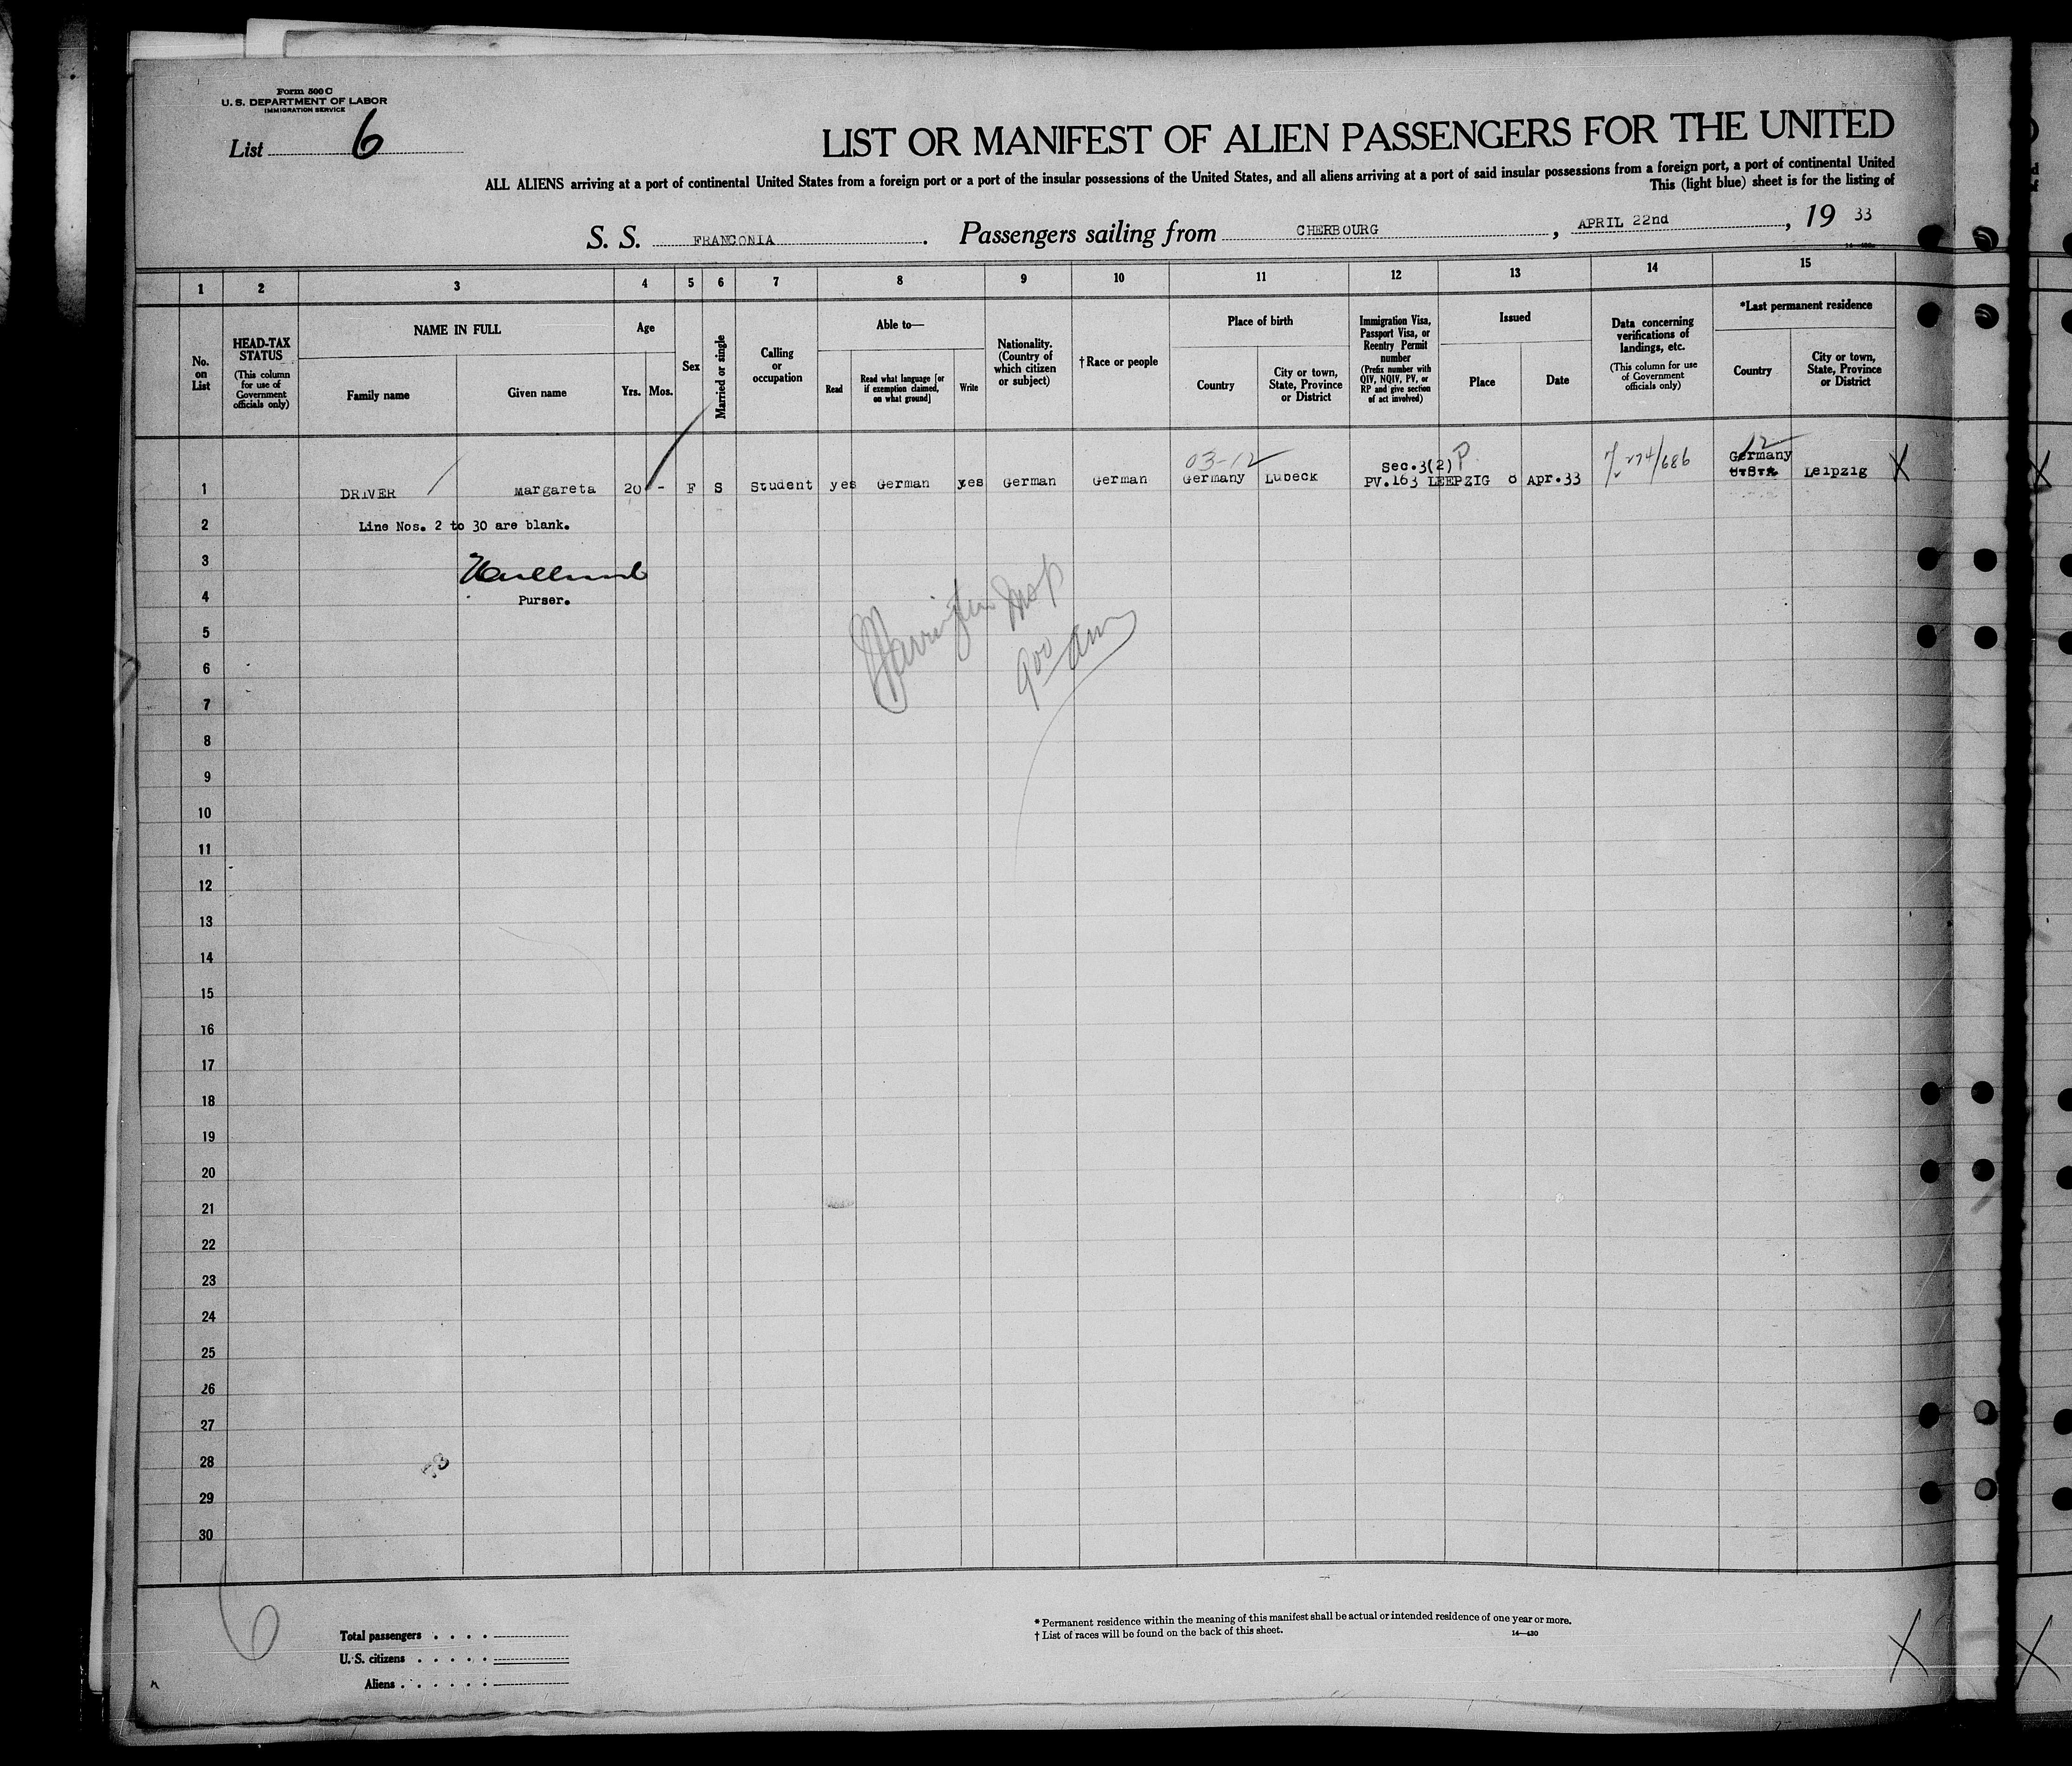 Form 500 C
U. S. DEPARTMENT OF LABOR
IMMIGRATION SERVICE
List 6
LIST OR MANIFEST OF ALIEN PASSENGERS FOR THE UNITED
ALL ALIENS arriving at a port of continental United States from a foreign port or a port of the insular possessions of the United States, and all aliens arriving at a port of said insular possessions from a foreign port, a port of continental United
This (light blue) sheet is for the listing of
S. S. FRANCONIA. Passengers sailing from CHERBOURG, APRIL 22nd, 19 33
1 2 3 4 5 6 7 8 9 10 11 12 13 14 15
No. on List
HEAD-TAX STATUS
(This column for use of Government officials only)
NAME IN FULL
Family name
Given name
Age
Yrs. Mos.
Sex
Married or single
Calling or occupation
Able to—
Read
Read what language [or if exemption claimed, on what ground]
Write
Nationality. (Country of which citizen or subject)
†Race or people
Place of birth
Country
City or town, State, Province or District
Immigration Visa, Passport Visa, or Reentry Permit number
(Prefix number with QIV, NQIV, PV, or RP and give section of act involved)
Issued
Place
Date
Data concerning verifications of landings, etc.
(This column for use of Government officials only)
*Last permanent residence
Country
City or town, State, Province or District
03-12 Sec.3(2) P 12
1 DRIVER Margareta 20 - F S Student yes German yes German German Germany Lubeck PV.163 LEEPZIG 8 Apr.33 Germany U.S.A. Leipzig X
2 Line Nos. 2 to 30 are blank.
3
4 Purser.
900 am
5
6
7
8
9
10
11
12
13
14
15
16
17
18
19
20
21
22
23
24
25
26
27
28
29
30
6
Total passengers . . . .
U. S. citizens . . . . .
Aliens . . . . . .
* Permanent residence within the meaning of this manifest shall be actual or intended residence of one year or more.
† List of races will be found on the back of this sheet.
14—430